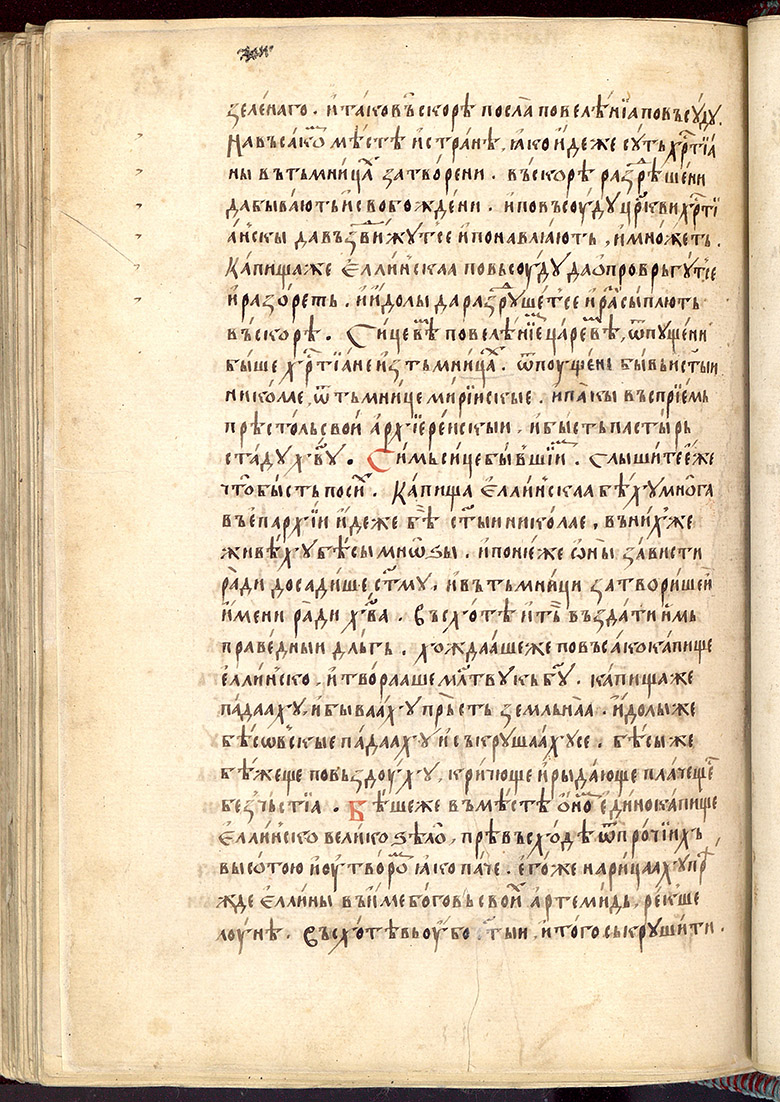 зеле́наго . и҆тако въ́скорѣ посла̀ повелѣ́нїа повъсꙋ́дꙋ .
На въ́сакѡⷨ мѣ́стѣ и҆ странѣ̀ , ꙗ҆́ко и҆́деже сꙋ́ть хрⷭ҇тїа́
ны въ тъмни́цаⷯ затво́рени . въ́скорѣ разⸯрѣ́шени
да быва́ють и҆ свобожде́ни . и҆ повъсоу́дꙋ цр҃кви хрⷭ҇тї
а́нскы да въз̾дви́жꙋтсе и҆ понавлꙗ́ють , и҆ мно́жеть .
Ка́пища же е҆́ллинскаа повьсоу́дꙋ да ѡ҆проврь́гꙋтсе
и҆ разо́реть . и҆ и҆́долы да разⸯрꙋ́шетсе и҆ ра́сыплють
въ́скорѣ . Си́це бѣ̀ повелѣ́нїе ца́рево , ѿпꙋ́щени
бы́ше хрⷭ҇тїа́не и҆з тъмни́цаⷯ . ѿпоу́щень бы́вь и҆ ст҃ыи
никола́е , ѿ тъмни́це мирі́искые . и҆ па́кы въспрїе́мь
прѣсто́ль сво́и а҆рхїере́искыи , и҆ бы́сть па́стырь
ста́дꙋ хв҃ꙋ . Си́мь си́це бы́вшїиⷨ . слы́шите е҆́же
что̀ бы́сть по си́ⷯ . Ка́пища е҆́ллинскаа бѣ́хꙋ мно́га
въ е҆па́рхїи и҆́деже бѣ̀ ст҃ыи никола́е , въ ни́хже
живѣ́хꙋ бѣ́сы мнѡ́ѕы . и҆ поне́же ѡ҆́ны за́висти
ра́ди досади́ше ст҃мꙋ , и҆ въ тъмни́ци затвори́ше и҆̀
и҆́мени ра́ди хв҃а . Въсхо́тѣ и҆ тъ̀ въз̾да́ти и҆́мь
пра́ведныи дль́гь . хожда́аше же по въ́сако ка́пище
е҆́ллинско . и҆ тво́рааше мл҃твꙋ къ бг҃ꙋ . ка́пища же
па́даахꙋ , и҆ быва́ахꙋ пръ́сть земльна́а . и҆́долы же
бѣ́сѡвскые па́даахꙋ и҆ съкрꙋша́ахꙋсе . бѣ́сы же
бѣ́жеще по въз̾доу́хꙋ , кри́чюще и҆ рыда́юще пла́чеще
без̾чь́стїа . Бѣ́ше же въ мѣ́стѣ ѻ҆́ноⷨ е҆ди́но ка́пище
е҆́ллинско вели́ко ѕѣлѡ̀ , прѣвъсхо́дѣ ѿ про́чїихъ
высо́тою и҆ оу҆тво́роⷨ ꙗ҆́ко па́че . е҆го́же нарица́ахꙋ прѣ́
жде е҆́ллины въ и҆́ме бо́говь свои́ⷯ а҆рте́мидь , ре́кше
лоу́нѣ . Въсхо́тѣвь оу҆̀бо ст҃ыи , и҆ того̀ ськ рꙋши́ти .